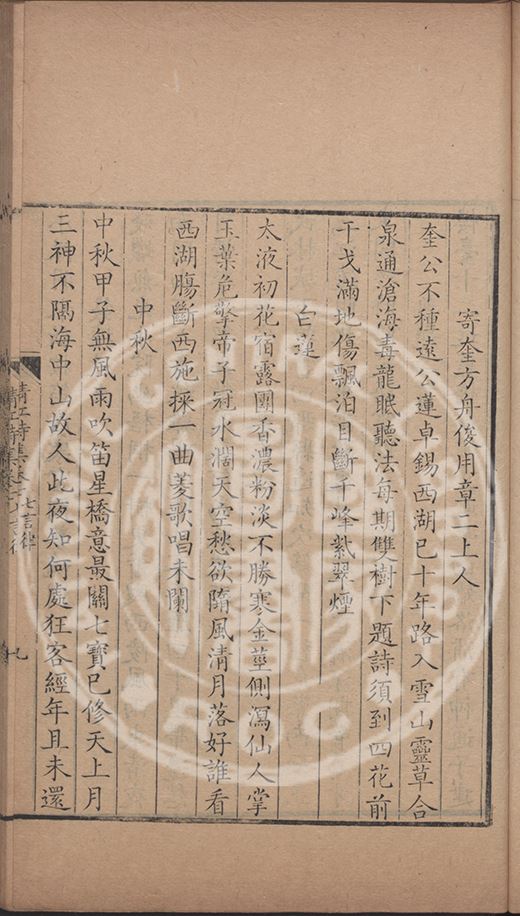 寄奎方舟俊用章二上人
奎公不種遠公蓮卓錫西湖已十年路入雪山靈草合
泉通滄海毒龍眠聽法每期雙樹下題詩須到四花前
干戈滿地傷飄泊目斷千峰紫翠煙
白蓮
太液初花宿露團香濃粉淡不勝寒金莖側瀉仙人掌
玉葉危擎帝子冠水濶天空愁欲墮風清月落好誰看
西湖腸斷西施採一曲菱歌唱未闌
中秋
中秋甲子無風雨吹笛星橋意最關七寶已修天上月
三神不隔海中山故人此夜知何處狂客經年且未還
清江詩集卷 七言律
九